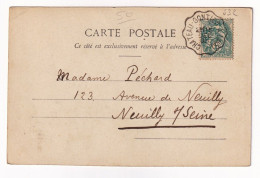 CARTE POSTALE
Ce côté est exclusivement réservé à l'adresse
Madame Péchard
123, Avenue de Neuilly
Neuilly s/Seine